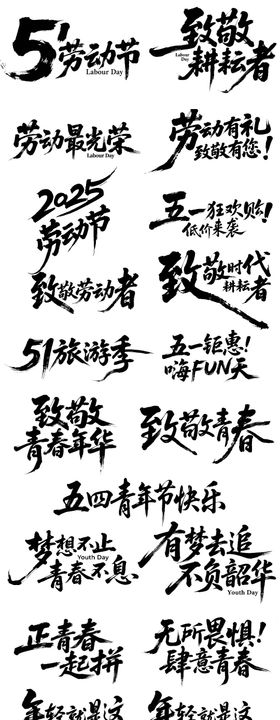 5
1劳动节
Labour Day
致敬
Labour Day
耕耘者
劳动最光荣
Labour Day
劳动有礼
致敬有您!
2025
劳动节
五一狂欢购!
低价来袭
致敬劳动者
致敬时代
耕耘者
51旅游季
五一钜惠!
嗨FUN天
致敬
青春年华
致敬青春
五四青年节快乐
梦想不止
Youth Day
青春不息
有梦去追
不负韶华
Youth Day
正青春
一起拼
无所畏惧!
肆意青春
年轻就是这
年轻就是这